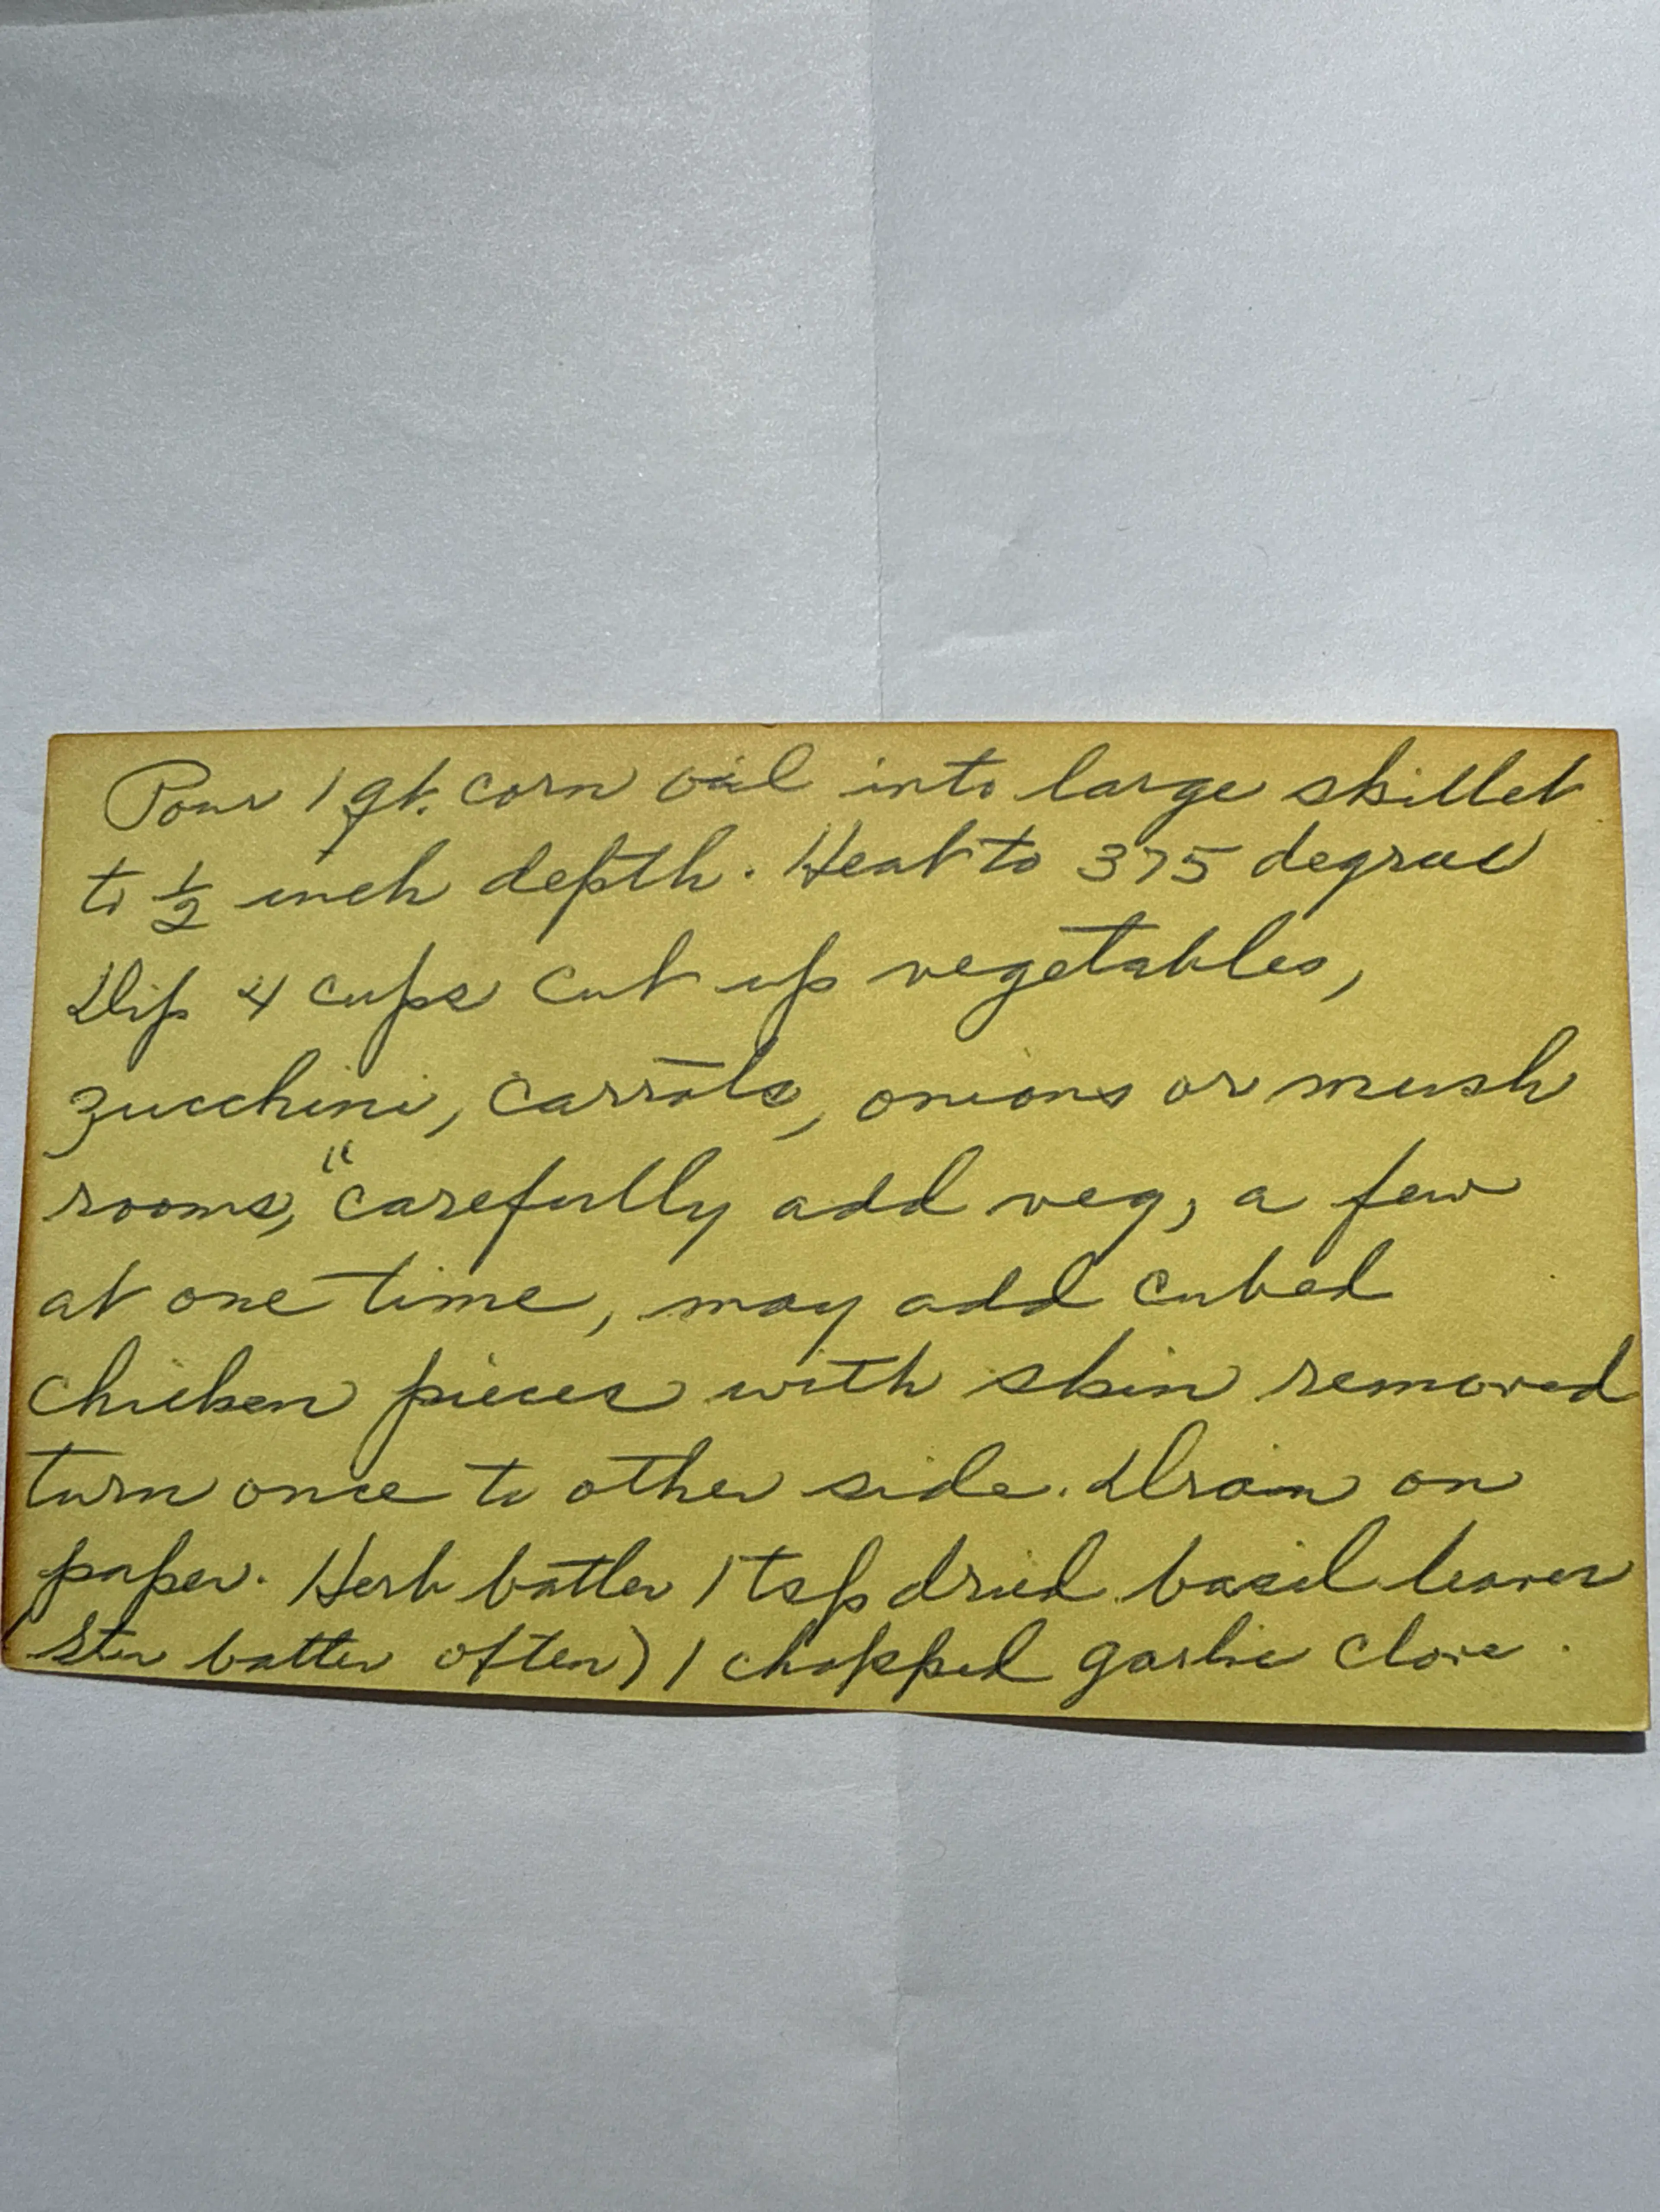 Pour 1 qt. corn oil into large skillet
to 1/2 inch depth. Heat to 375 degree
Dip 4 cups cut up vegetables,
zucchini, carrots, onions or mush
rooms, "carefully add veg, a few
at one time, may add cubed
chicken pieces with skin removed
turn once to other side. Drain on
paper. Herb batter 1 tsp dried basil leaves
Stir batter often) 1 chopped garlic clove.